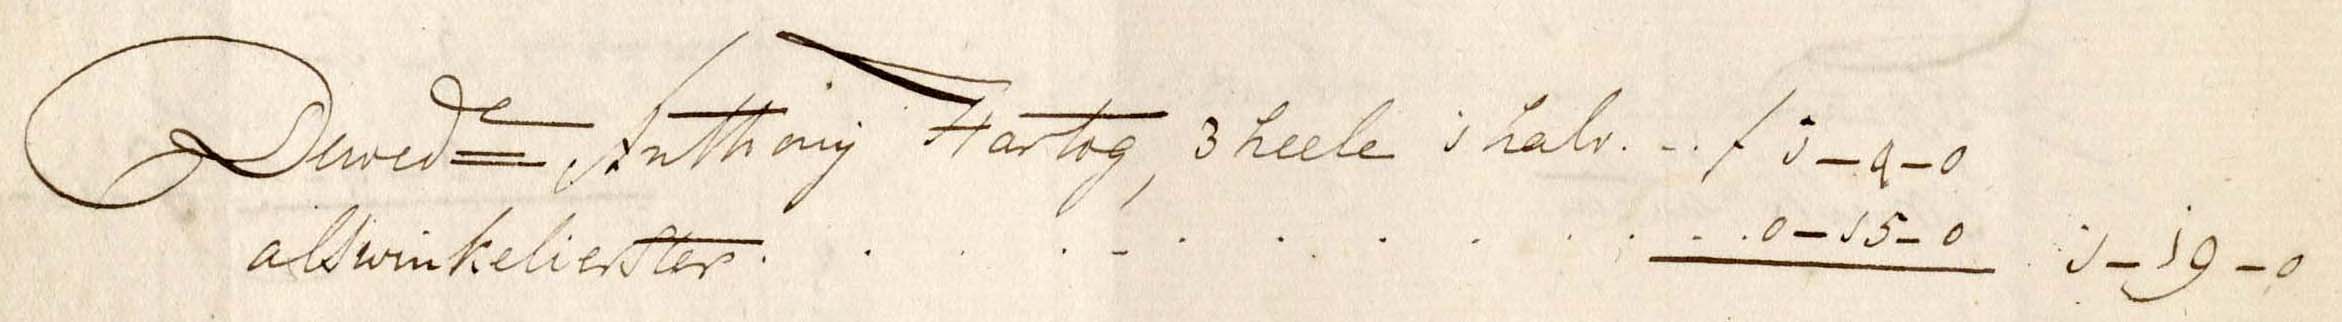 De wed:e Anthonij Hartog, 3 heele 1 halv. - .. f 1 - 4 - 0
als winkelierster. . . . - . . . . . . - . 0 - 15 - 0 1 - 19 - 0